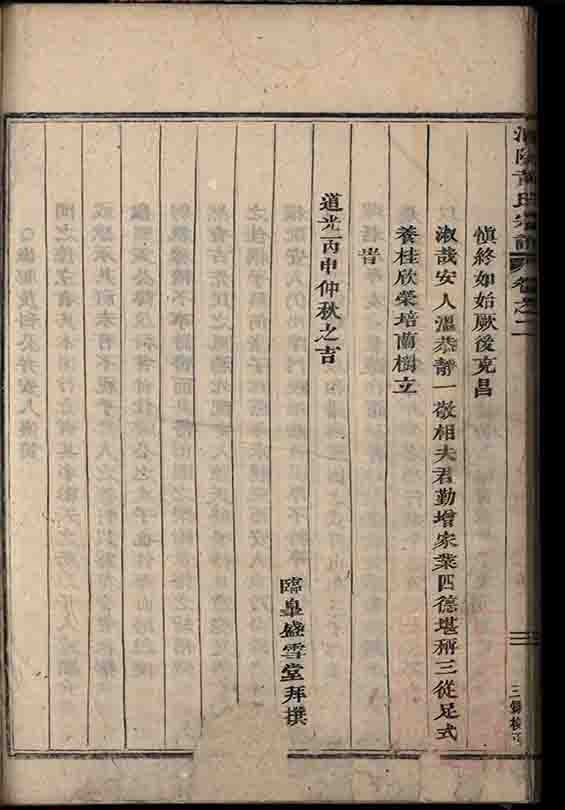 氏宗譜 卷之二
三
慎終如始厥後克昌
淑哉安人溫恭靜一敬相夫君勤增家業四德堪稱三從足式
養桂欣榮培蘭樹立
峕
道光丙申仲秋之吉
臨皐盛雪堂拜撰